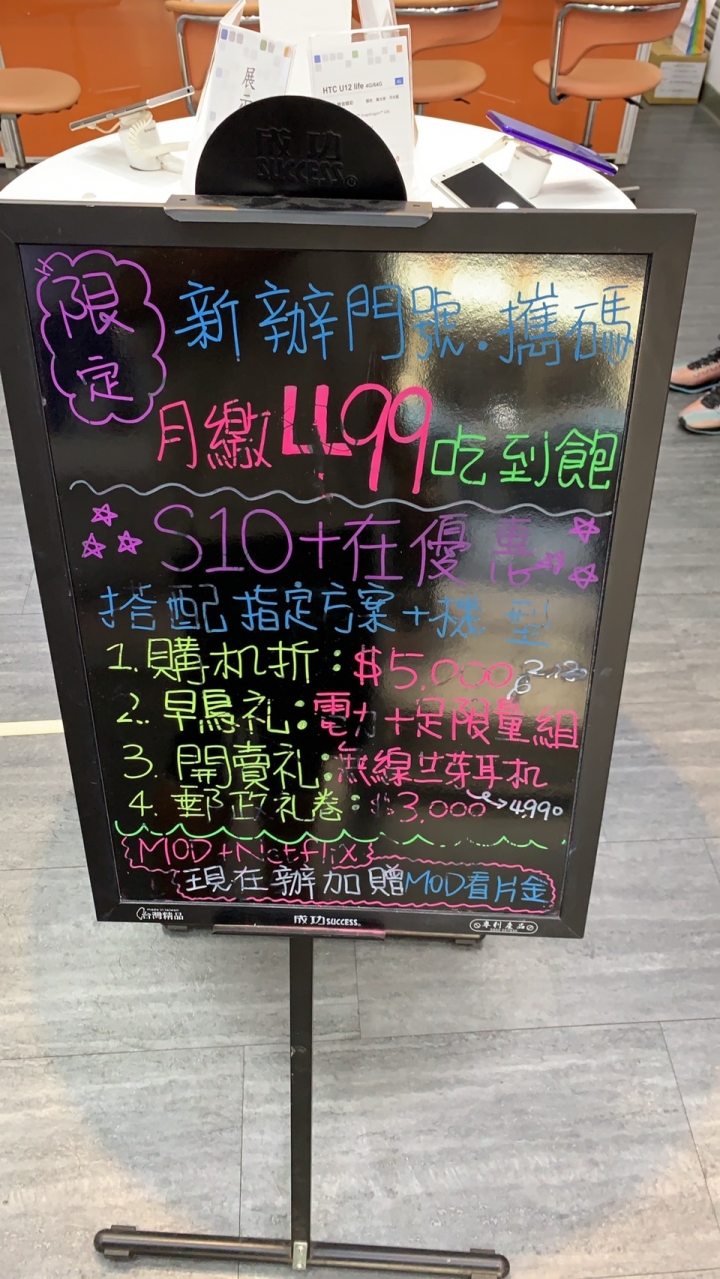 展示
HTC U12 life 4G/64G
成功
SUCCESS®
限定
新辦門號.攜碼
月繳499吃到飽
S10+在優惠
搭配指定方案+機型
1.購机折:$5,000
2.早鳥礼:電力+足限量組
3.開賣礼:無線芽耳机
4.郵政礼卷:$3,000 4,990
MOD+Netflix
現在辦加贈MOD看片金
made in taiwan
台灣精品
成功SUCCESS®
專利產品